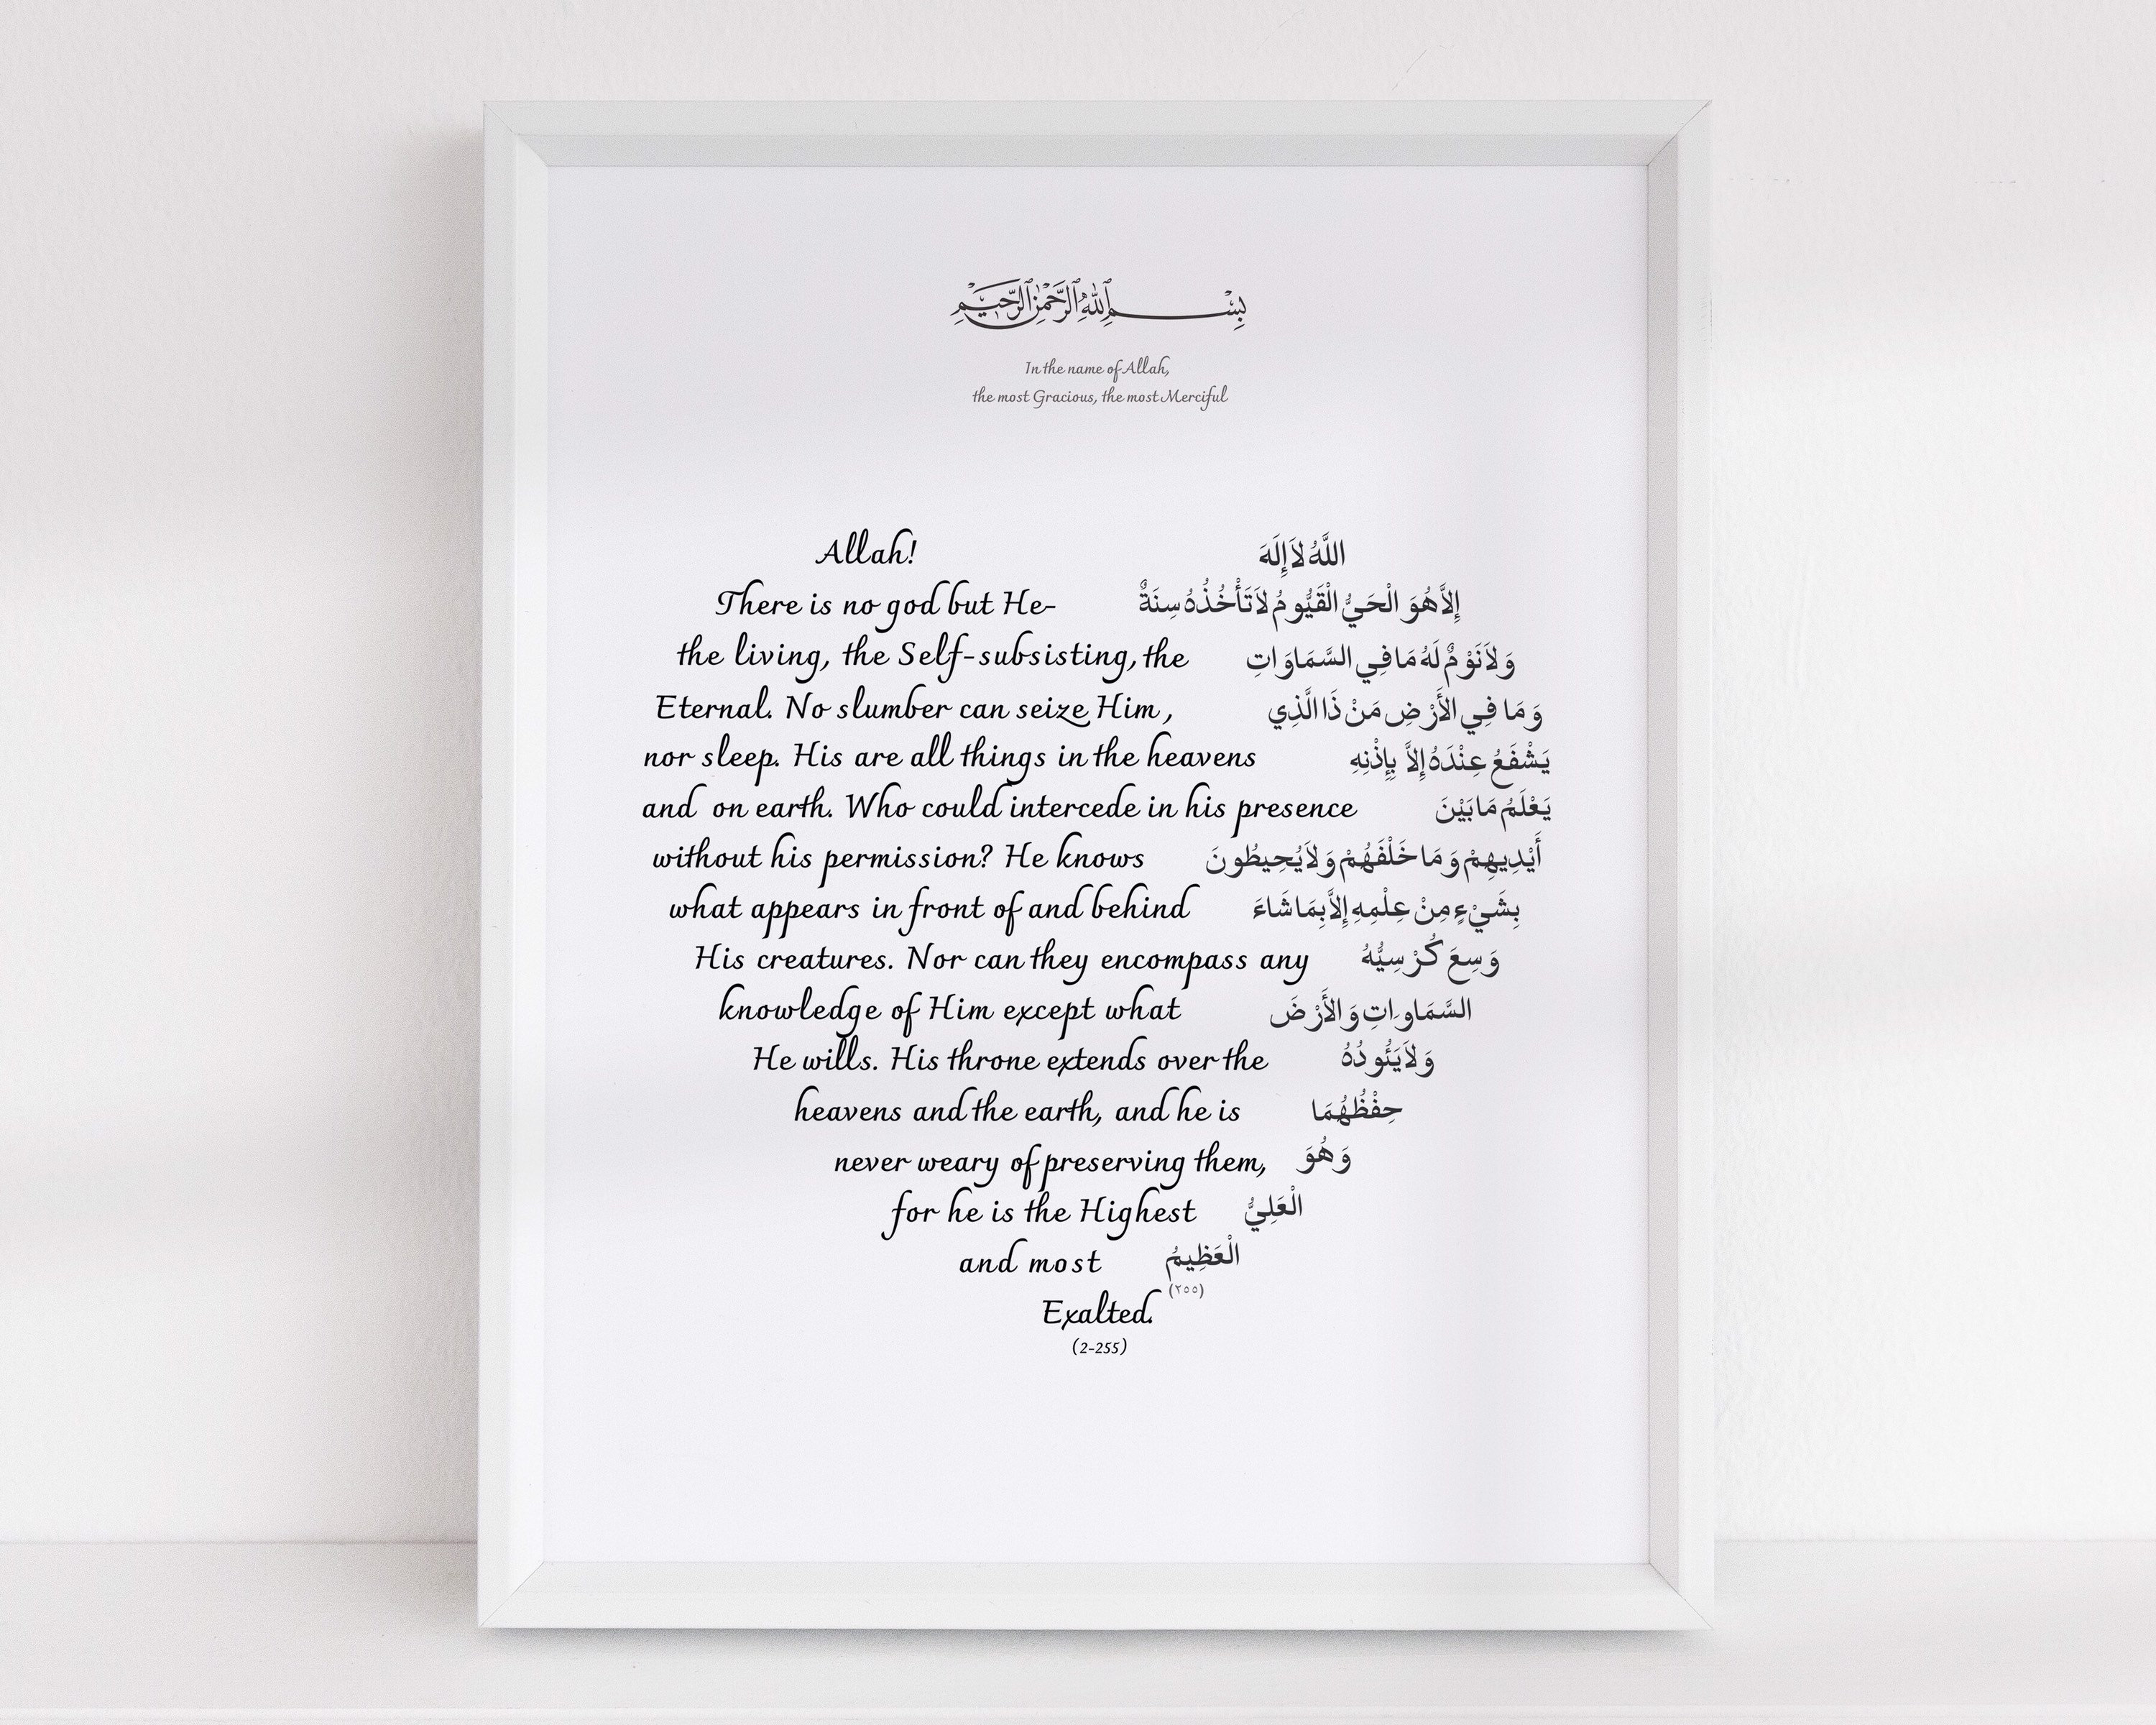 بِسْمِ ٱللَّهِ ٱلرَّحْمَٰنِ ٱلرَّحِيمِ
In the name of Allah,
the most Gracious, the most Merciful
Allah!
There is no god but He-
the living, the Self-subsisting, the
Eternal. No slumber can seize Him,
nor sleep. His are all things in the heavens
and on earth. Who could intercede in his presence
without his permission? He knows
what appears in front of and behind
His creatures. Nor can they encompass any
knowledge of Him except what
He wills. His throne extends over the
heavens and the earth, and he is
never weary of preserving them,
for he is the Highest
and most
Exalted.
(2-255)
اللَّهُ لاَ إِلَهَ
إِلاَّ هُوَ الْحَيُّ الْقَيُّومُ لاَ تَأْخُذُهُ سِنَةٌ
وَلاَ نَوْمٌ لَهُ مَا فِي السَّمَاوَاتِ
وَمَا فِي الأَرْضِ مَنْ ذَا الَّذِي
يَشْفَعُ عِنْدَهُ إِلاَّ بِإِذْنِهِ
يَعْلَمُ مَا بَيْنَ
أَيْدِيهِمْ وَمَا خَلْفَهُمْ وَلاَ يُحِيطُونَ
بِشَيْءٍ مِنْ عِلْمِهِ إِلاَّ بِمَا شَاءَ
وَسِعَ كُرْسِيُّهُ
السَّمَاوَاتِ وَالأَرْضَ
وَلاَ يَئُودُهُ
حِفْظُهُمَا
وَهُوَ
الْعَلِيُّ
الْعَظِيمُ
(٢٥٥)